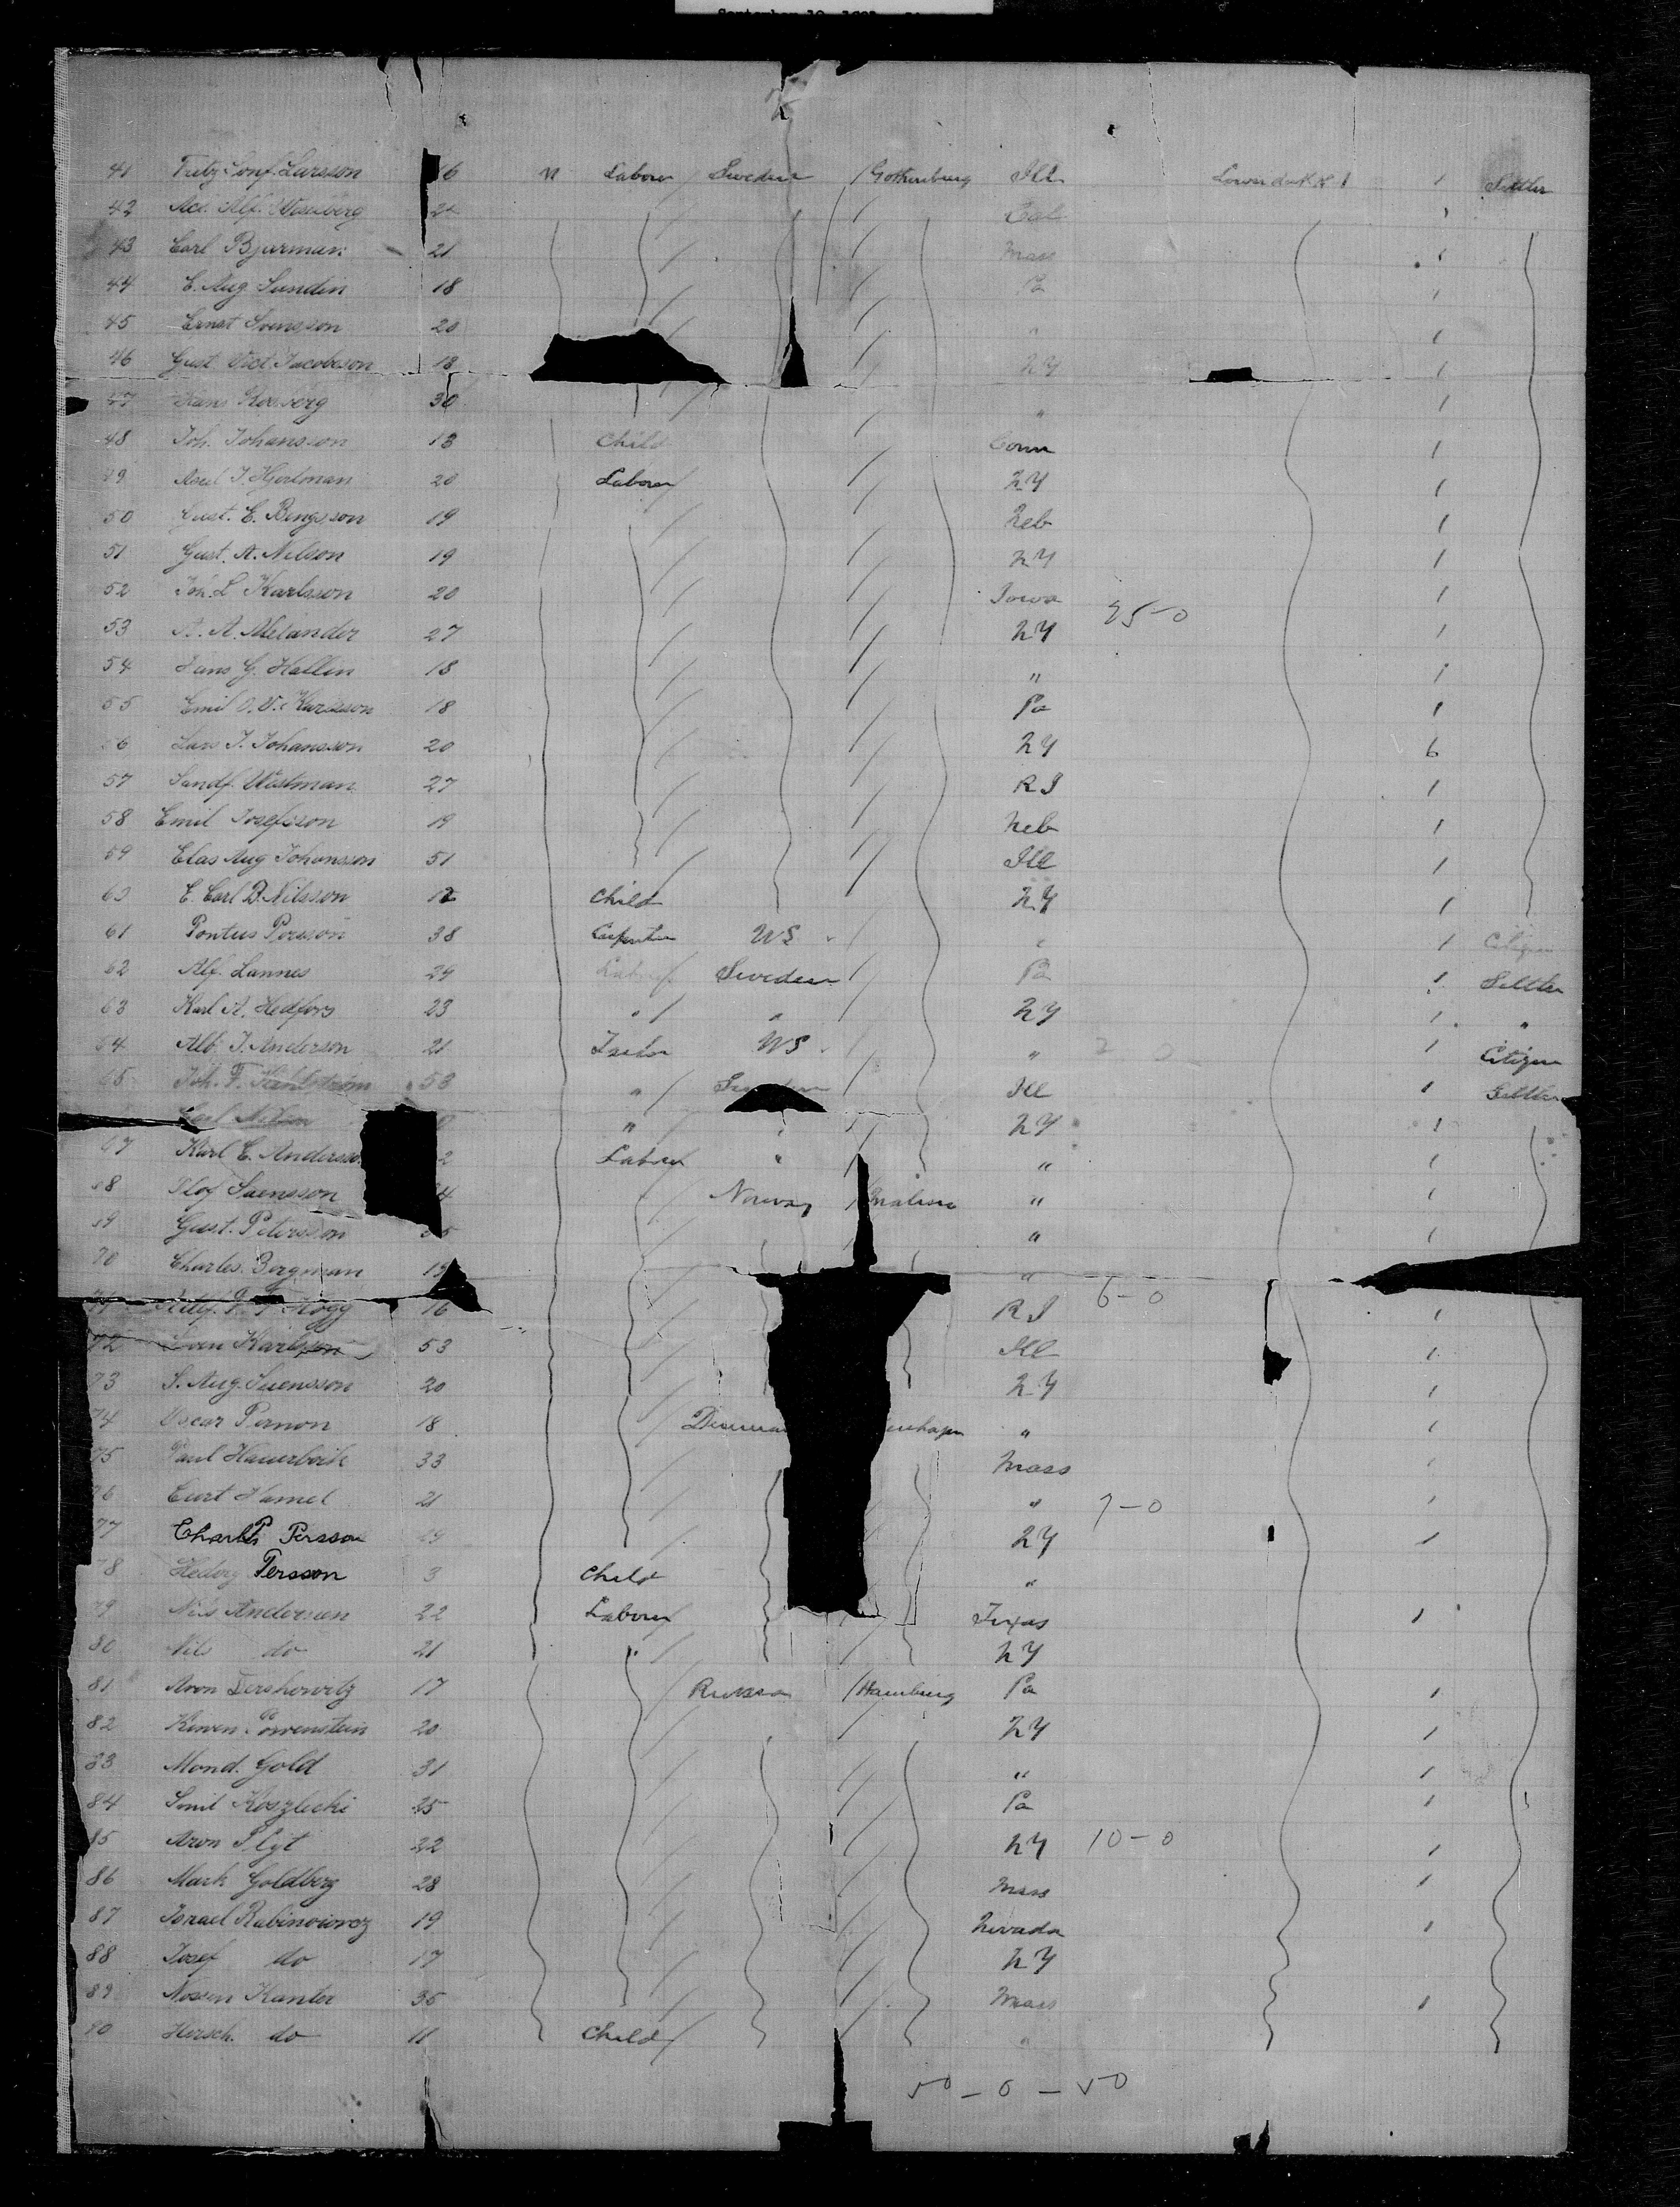 41 Fritz Conf. Larsson 16 M Labour / Sweden / Gothenburg Ill Lower deck 1 1 Settler
42 Alf. Cal 1
43 Carl Bjurman 21 Mass 1
44 E. Aug. Sundin 18 Pa 1
45 Ernst Svensson 20 " 1
46 Gust. Vict. Jacobsson 18 NY 1
47 Hans 30 " 1
48 Joh. Johansson 13 Child Conn 1
49 Axel J. Hjertman 20 Labour NY 1
50 Gust. E. Bengsson 19 Neb 1
51 Gust. A. Nelson 19 NY 1
52 Joh. L Karlsson 20 Iowa 1
25-0
53 A. A. Melander 27 NY 1
54 Hans G. Hallin 18 " 1
55 Emil O. V. Karlsson 18 Pa 1
56 Lars J. Johansson 20 NY 6
57 Sandf. Westman 27 R I 1
58 Emil Josefsson 19 Neb 1
59 Clas Aug Johansson 51 Ill 1
60 E. Carl B. Nilsson 12 Child NY 1
61 Pontus Persson 38 Carpenter US " 1 Citizen
62 Alf. Lannes 29 Labour Sweden Pa 1 Settler
63 Karl A. Hedfors 23 " " NY 1 "
64 Alb. J. Anderson 21 Tailor US " 1 Citizen
65 Joh. F. 53 " Sweden Ill 1 Settler
Carl " " NY 1
67 Karl E. Andersso 2 Labour " " 1
68 Olof Svensson 24 Norway / Malmo " 1
69 Gust. Petersson " 1
70 Charles Bergman 19 "
6-0
71 16 R I 1
72 Sven Karlsson 53 Ill 1
73 S. Aug. Suensson 20 NY 1
74 Oscar Pernon 18 Denma enhagen " 1
75 Paul Hauerbeik 33 Mass 1
76 Curt Hamel 21 " 7-0 1
77 Charles Persson NY 1
78 Hedvig Persson 3 Child "
79 Nils Andersen 22 Labour Texas 1
80 Nils do 21 " NY
81 Aron Dershowitz 17 Russia / Hamburg Pa 1
82 Kiwen Lowenstein 20 NY 1
83 Mond. Gold 31 " 1
84 Smil Koszlecki 25 Pa 1
85 Aron Plyt 22 NY 10-0 1
86 Mark Goldberg 28 Mass 1
87 Israel Rabinowicz 19 Nevada 1
88 Josef do 17 NY
89 Nossen Kanter 35 Mass 1
90 Hersch. do 11 Child "
50 - 0 - 50